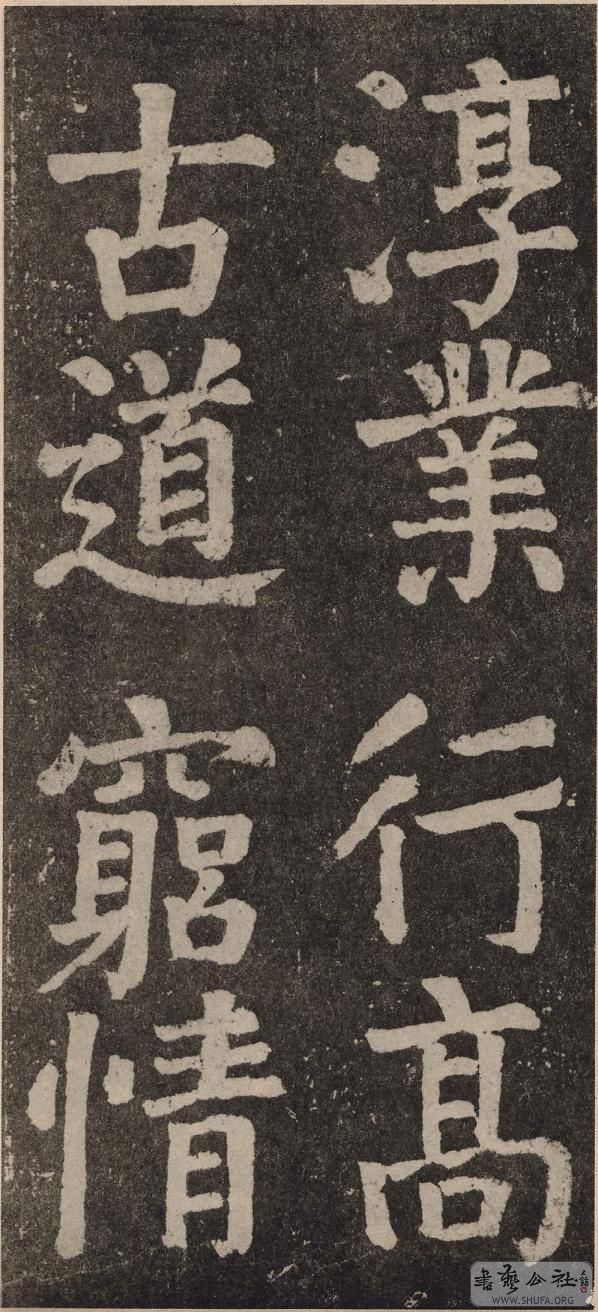 淳業行髙
古道窮情
書藝公社
WWW.SHUFA.ORG